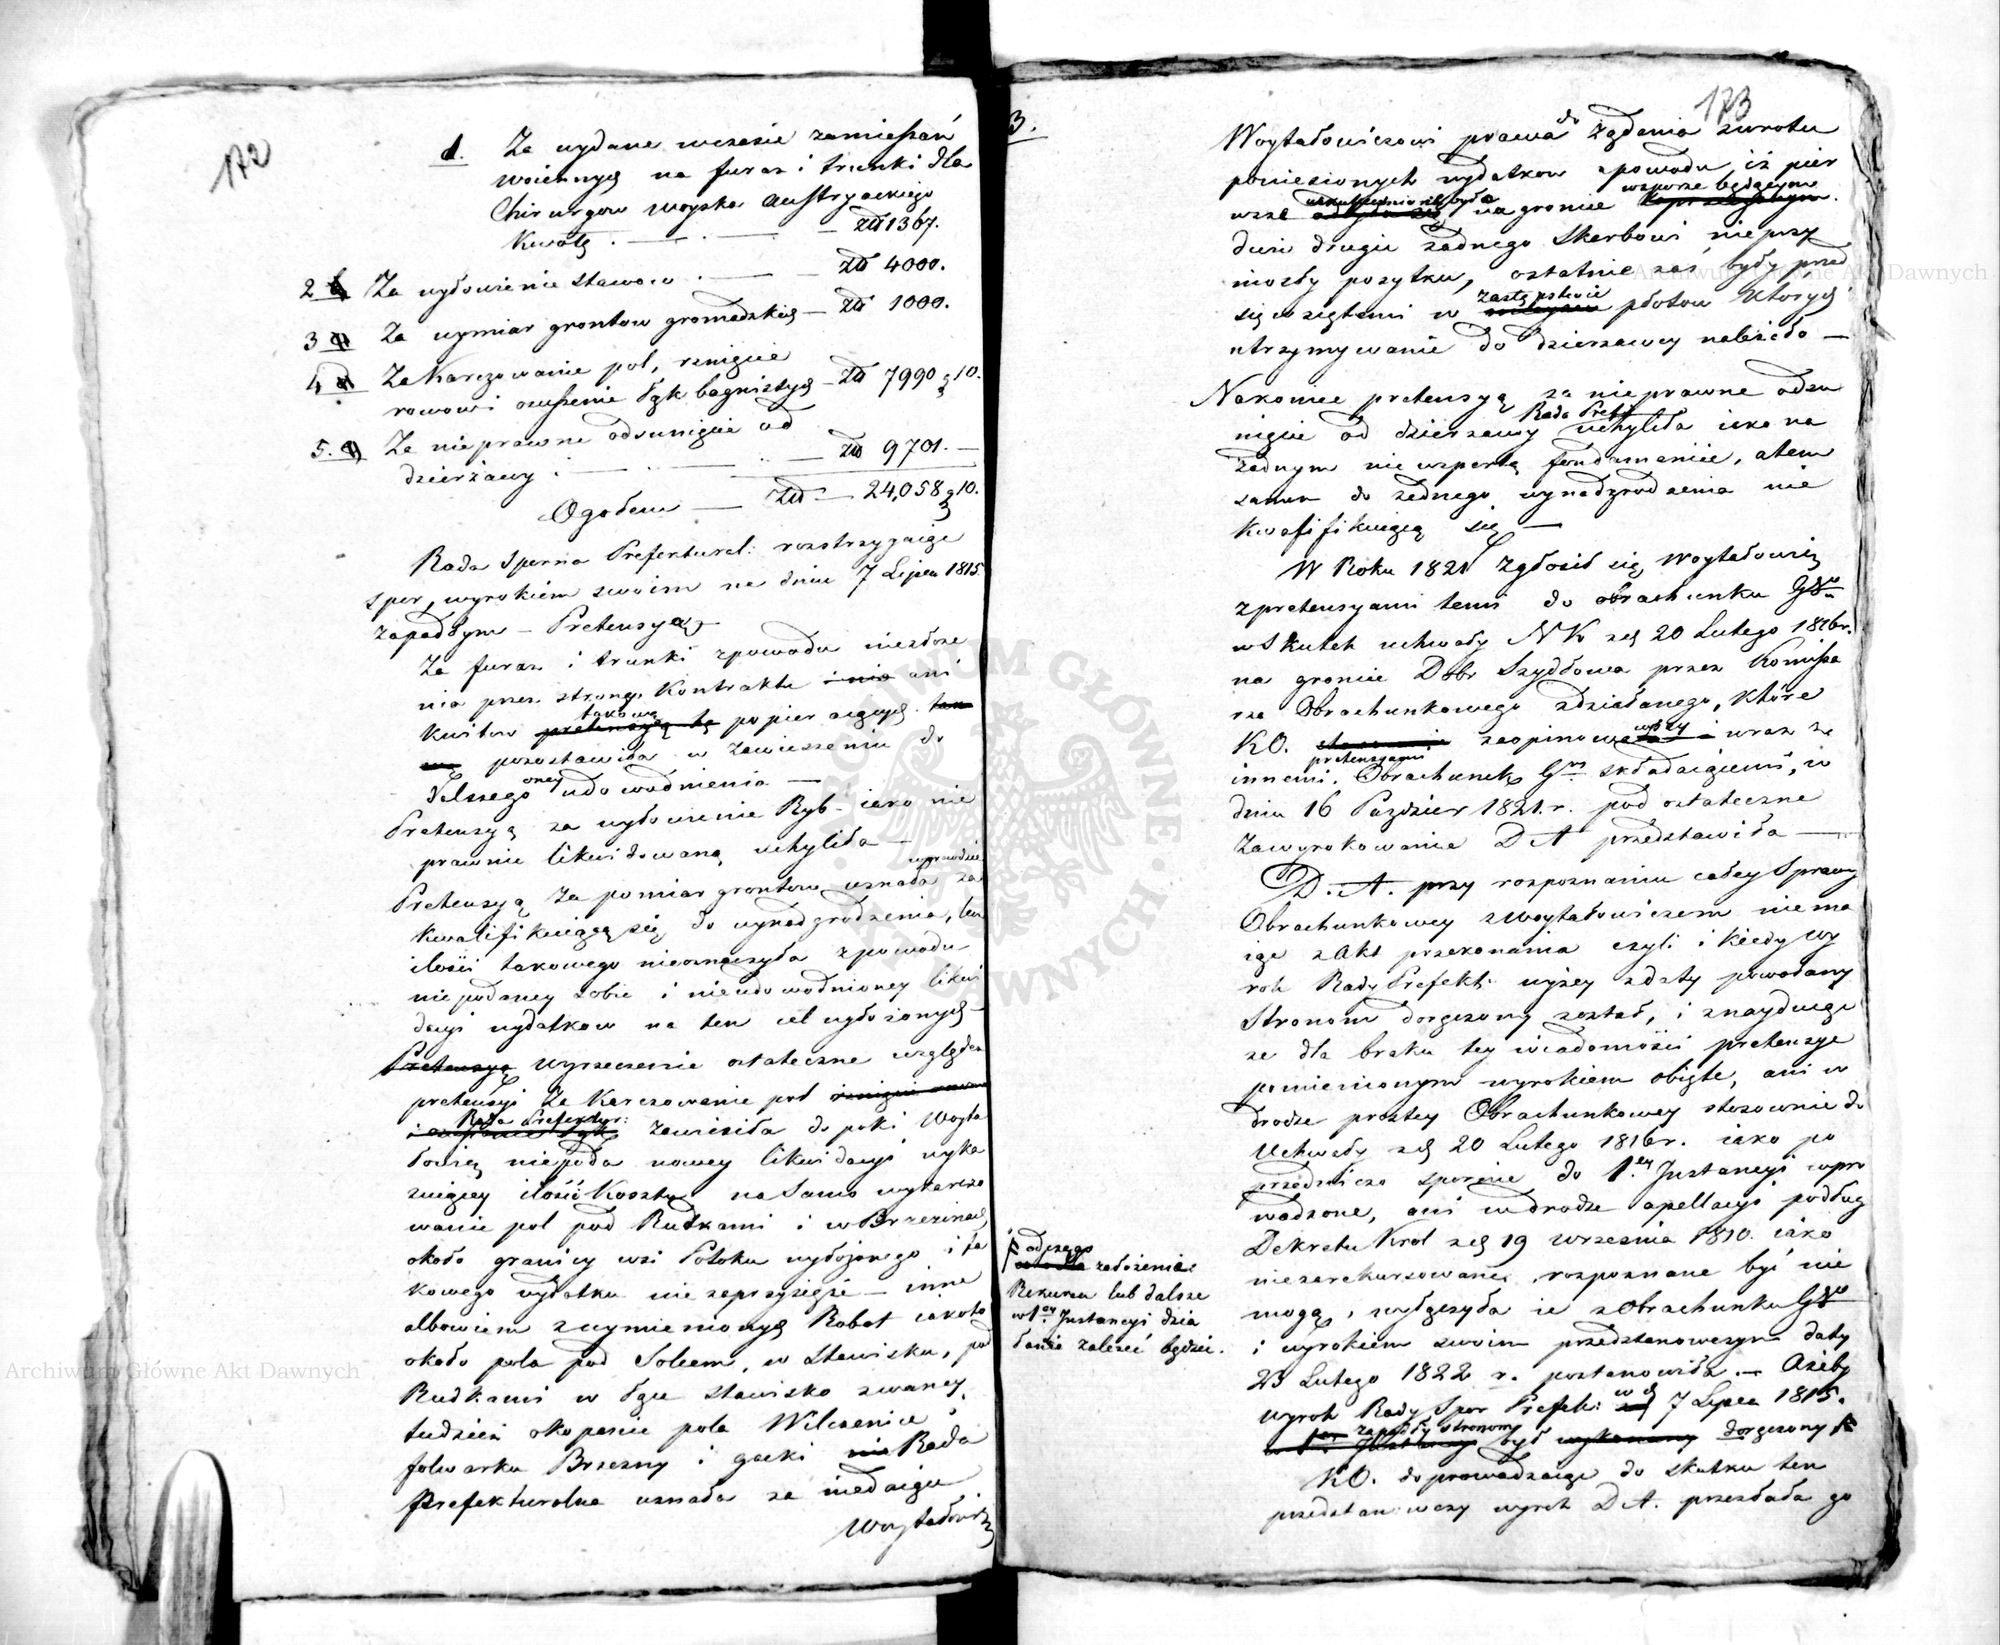 172
1. Za wydane wczasie zamieszań
woiennych na furaz i trunki dla
Chirurgow woyska austryackiego
Kwotę . — . — zł 1367.
2 Za wyłowienie stawow . — zł 4000.
3 Za wymiar grontow gromadzkich — zł 1000.
4 Za Karczowanie pol, rznięcie
rowow i osuszenie łąk bagnistych — zł 7990 g 10.
5. Za nieprawne odsunięcie od
dzierżawy . — zł 9701. —
Ogołem — zł — 24,058 g 10.
Rada Sporna Prefektural: rozstrzygaiąc
spor, wyrokiem swoim na dniu 7 Lipca 1815
zapadłym — Pretensyą —
Za furaz i trunki zpowodu niezłoże
nia przez stronę Kontraktu ani
Kwitow takową popieraiących
pozostawiła w zawieszeniu do
dalszego oney udowodnienia —
Pretensyą za wyłowienie Ryb — iako nie
prawnie likwidowaną uchyliła —
Pretensyą za pomiar grontow uznała wprawdzie za
kwalifikuiącą się do wynadgrodzenia, lecz
ilości takowego nieoznaczyła zpowodu
niepodaney sobie i nieudowodnioney likwi
dacyi wydatkow na ten cel wyłożonych —
Pretensyą wyrzeczenie ostateczne względem
pretensyi za Karczowanie pol
Rada Prefektur: zawiesiła do poki Woyta
łowicz niepoda nowey likwidacyi wyka
zuiącey ilość Kosztu na samo wykarczo
wanie pol pod Rudkami i w Brzezinach
około granicy wsi Potoku wyłożonego i ta
kowego wydatku nie zaprzysięże — inne
albowiem zwymienionych Robot iakoto
około pola pod Solcem, w Stawisku, pod
Rudkami w łące stawisko zwaney,
tudzież okopanie pola Wilczenice
folwarku Brzezny i gacki Rada
Prefekturalna uznała za niedaiące
Woytałowicz
173
3.
Woytałowiczowi prawa do żądania zwrotu
poniesionych wydatkow zpowodu iż pier
wsze uskutecznione były na groncie wsporze będącym
dwie drugie żadnego Skarbowi nieprzy
niosły pożytku, ostatnie zaś były przed
się wziętemi w zastępstwie płotow których
utrzymywanie do dzierzawcy należało —
Nakoniec pretensyą za nieprawne odsu
nięcie od dzierzawy Rada Pref: uchyliła iako na
żadnym niewspertą fondamencie, a tem
samem do żadnego wynadgrodzenia nie
kwalifikuiącą się —
W Roku 1821 zgłosił się Woytałowicz
zpretensyami temi do obrachunku Ggo
w skutek uchwały NKo z d 20 Lutego 1816r.
na groncie Dobr Szydłowa przez Kommissa
rza Obrachunkowego zdziałanego, które
KO. zaopiniowawszy wraz ze
innemi pretensyami Obrachunek Gny składaiącemi, w
dniu 16 Paździer 1821.r. pod ostateczne
Zawyrokowanie DA przedstawiła —
D.A. przy rozpoznaniu całey Sprawy
Obrachunkowey z Woytałowiczem niema
iąc z Akt przekonania czyli i kiedy wy
rok Rady Prefekt: wyżey z daty powołany
Stronom doręczony został, i znayduiąc
że dla braku tey wiadomości pretensye
pomienionym wyrokiem obięte, ani w
drodze prostey Obrachunkowey stosownie do
Uchwały z d 20 Lutego 1816r. iako po
przedniczo spornie do 1.ey Instancyi wpro
wadzone, ani w drodze apellacyi podług
Dekretu Krol z d 19 września 1810. iako
niezarekursowane, rozpoznane być nie
mogą, wyłączyła ie z Obrachunku Ggo
i wyrokiem swoim przedstanowczym daty
23 Lutego 1822 r. postanowiła. — Ażeby
wyrok Rady Spor Prefek: w d 7 Lipca 1815.
zapadły stronom był doręczony
KO. doprowadzaiąc do skutku ten
przedstanowczy wyrok DA. przesłała go
od czego założenie
Rekursu lub dalsze
w 1ey Instancyi dzia
łanie zależeć będzie.